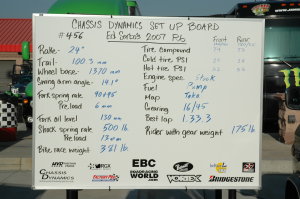 CHASSIS DYNAMICS SET UP BOARD
#456 Ed Sorbo's 2007
Rake- 24°
Trail- 100.3 mm
Wheel base- 1370 mm
Swing arm angle-
Fork spring rate 90+95
Pre load 6 mm
Fork oil level 130 mm
Shock spring rate 500 lb.
Pre load 13 mm
Bike race weight
Front Rear
Tire compound
Cold tire PSI
Hot tire PSI
Engine spec. Stock
Fuel Pump
Map
Gearing 16/45
Best lap 1.33.3
Rider with gear weight 175 lb
CHASSIS DYNAMICS
EBC
ROADRACING WORLD.COM
VORTEX
BRIDGESTONE